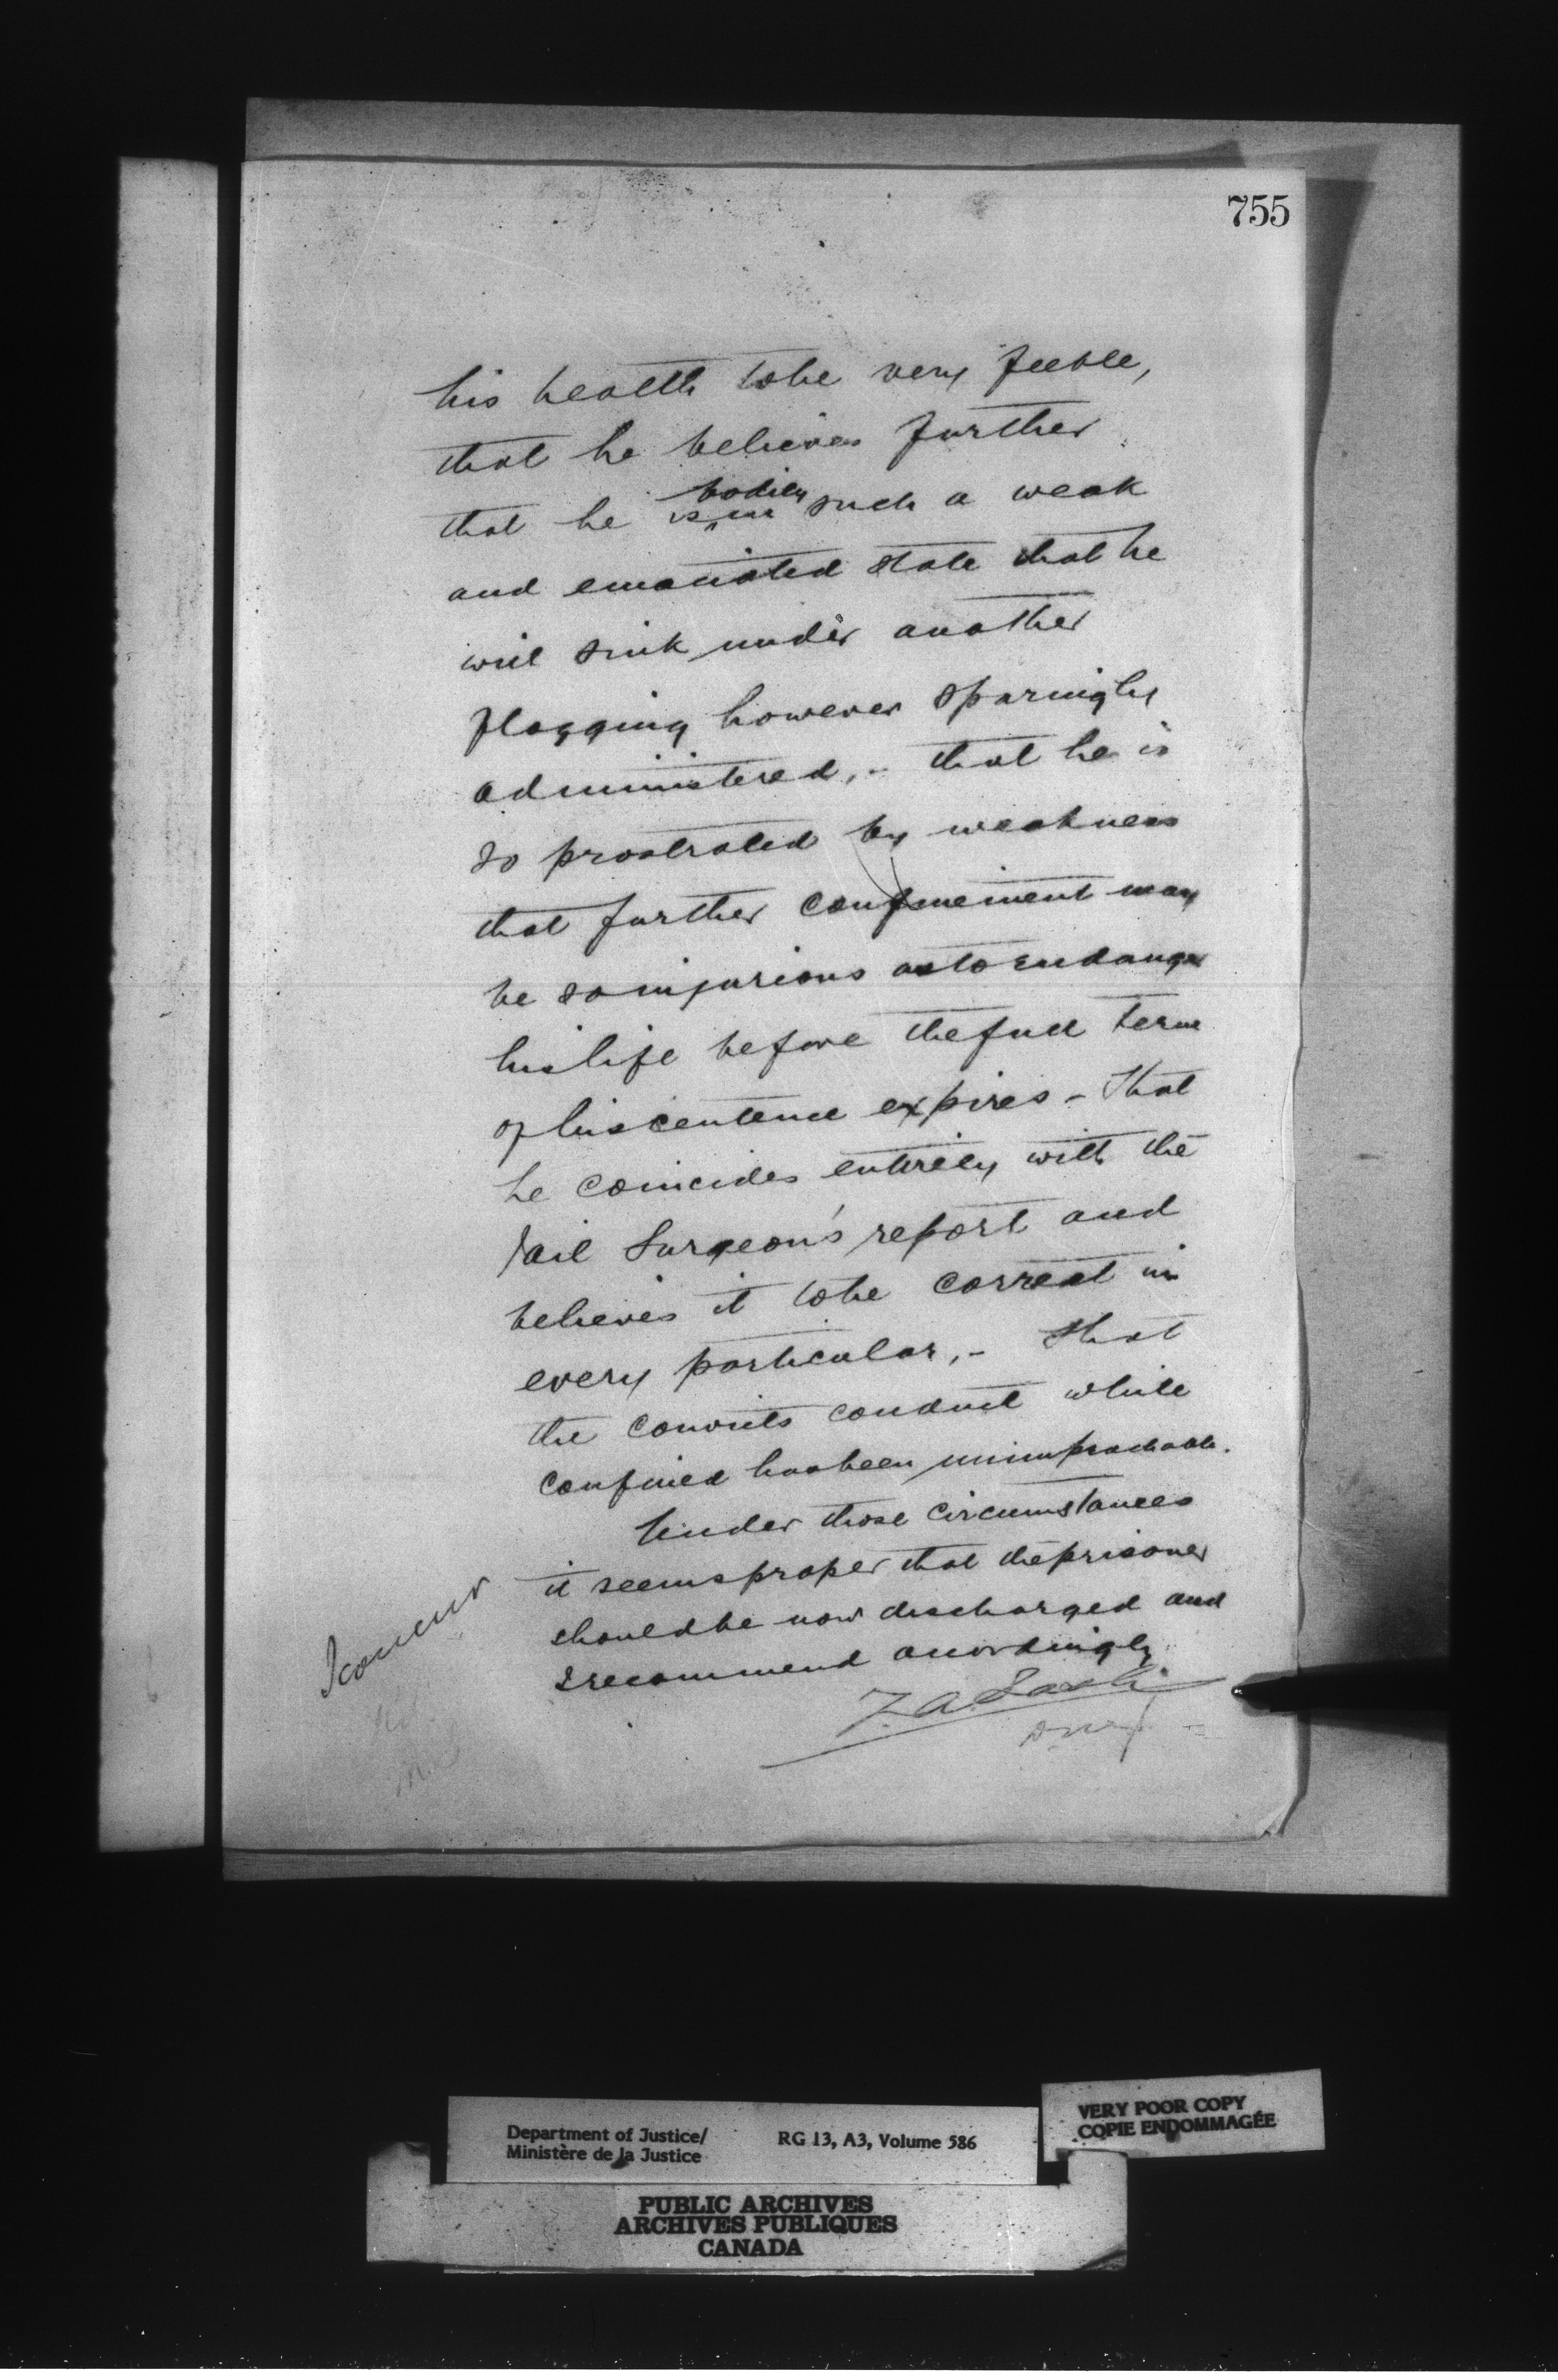 755
his health to be very feeble,
that he believes further
that he is bodily in such a weak
and emaciated state that he
will sink under another
flogging however sparingly
administered, - that he is
so prostrated by weakness
that further confinement may
be so injurious as to endanger
his life before the full term
of his centence expires - That
he coincides entirely with the
Jail Surgeon's report and
believes it to be correct in
every particular, - that
the convicts conduct while
confined has been unimpeachable.
Under those circumstances
it seems proper that the prisoner
should be now discharged and
I recommend accordingly
Z. A. Lash
DMJ
I concur
Department of Justice/
Ministère de la Justice
RG 13, A3, Volume 586
VERY POOR COPY
COPIE ENDOMMAGÉE
PUBLIC ARCHIVES
ARCHIVES PUBLIQUES
CANADA